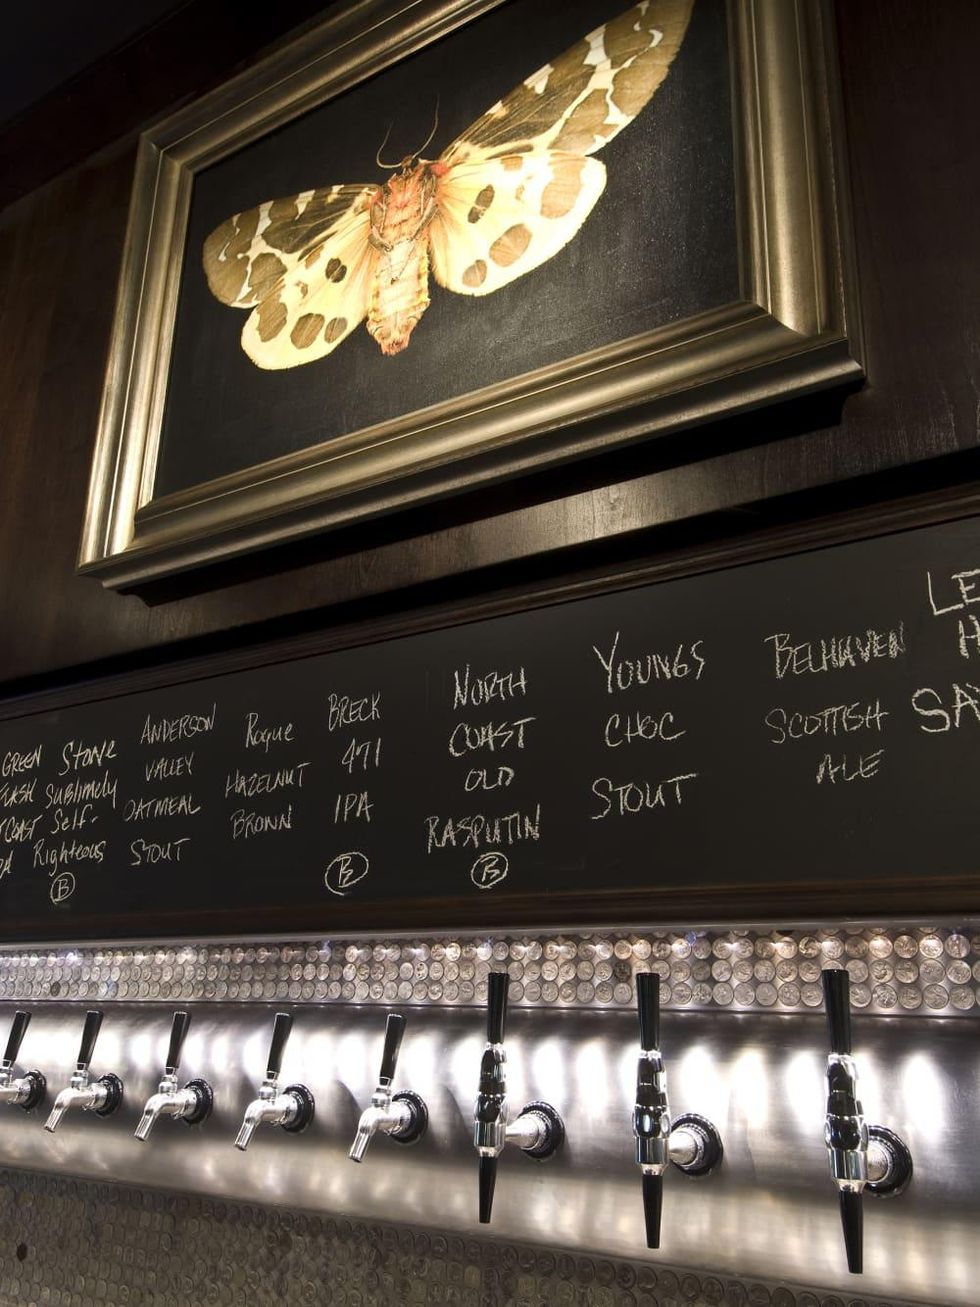 GREEN
FLASH
COAST
Stone
Sublimely
Self-
Righteous
B
ANDERSON
VALLEY
OATMEAL
STOUT
Rogue
HAZELNUT
BROWN
BRECK
471
IPA
B
NORTH
COAST
OLD
RASPUTIN
B
YOUNGS
CHOC
STOUT
BELHAVEN
SCOTTISH
ALE
LE
H
SA